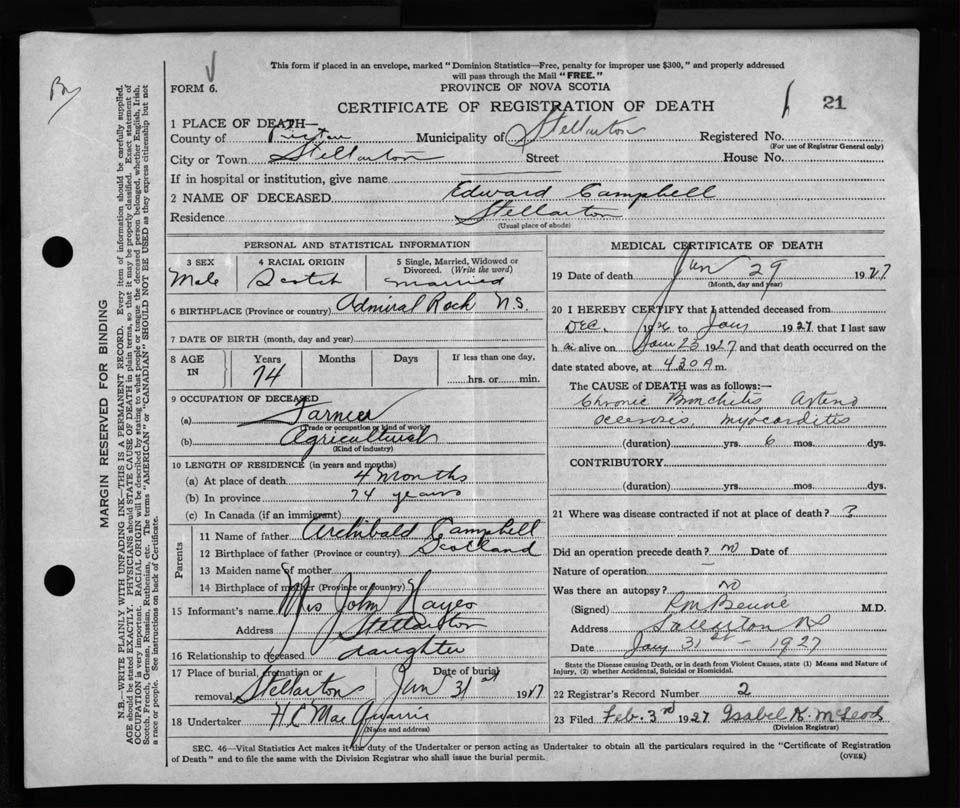 This form if placed in an envelope, marked "Dominion Statistics—Free, penalty for improper use $300," and properly addressed
will pass through the Mail "FREE."
FORM 6.
PROVINCE OF NOVA SCOTIA
CERTIFICATE OF REGISTRATION OF DEATH
21
1 PLACE OF DEATH—
County of Pictou Municipality of Stellarton Registered No.
(For use of Registrar General only)
City or Town Stellarton Street House No.
If in hospital or institution, give name
2 NAME OF DECEASED Edward Campbell
Residence Stellarton
(Usual place of abode)
PERSONAL AND STATISTICAL INFORMATION
3 SEX 4 RACIAL ORIGIN 5 Single, Married, Widowed or Divorced. (Write the word)
Male Scotch Married
6 BIRTHPLACE (Province or country) Admiral Rock N.S.
7 DATE OF BIRTH (month, day and year)
8 AGE IN Years Months Days If less than one day,
74 hrs. or min.
9 OCCUPATION OF DECEASED
(a) Farmer
(Trade or occupation or kind of work)
(b) Agricultural
(Kind of industry)
10 LENGTH OF RESIDENCE (in years and months)
(a) At place of death 4 months
(b) In province 74 years
(c) In Canada (if an immigrant)
Parents
11 Name of father Archibald Campbell
12 Birthplace of father (Province or country) Scotland
13 Maiden name of mother
14 Birthplace of mother (Province or country)
15 Informant's name Mrs John Hayes
Address Stellarton
16 Relationship to deceased daughter
17 Place of burial, cremation or removal Stellarton Date of burial Jan 31st 1927
18 Undertaker H.C. MacQuarrie
(Name and address)
MEDICAL CERTIFICATE OF DEATH
19 Date of death Jan 29 1927
(Month, day and year)
20 I HEREBY CERTIFY that I attended deceased from
Dec. 1926 to Jany 1927 that I last saw
h im alive on Jan 25 1927 and that death occurred on the
date stated above, at 4.30 A m.
The CAUSE of DEATH was as follows:—
Chronic Bronchitis Arterio
sclerosis, myocarditis
(duration) yrs. 6 mos. dys.
CONTRIBUTORY
(duration) yrs. mos. dys.
21 Where was disease contracted if not at place of death? ?
Did an operation precede death? no Date of
Nature of operation
Was there an autopsy? no
(Signed) M.D.
Address Stellarton NS
Date Jany 31st 1927
State the Disease causing Death, or in death from Violent Causes, state (1) Means and Nature of
Injury, (2) whether Accidental, Suicidal or Homicidal.
22 Registrar's Record Number 2
23 Filed Feb. 3rd 1927 Isabel K. McLeod
(Division Registrar)
SEC. 46—Vital Statistics Act makes it the duty of the Undertaker or person acting as Undertaker to obtain all the particulars required in the "Certificate of Registration
of Death" and to file the same with the Division Registrar who shall issue the burial permit.
(OVER)
MARGIN RESERVED FOR BINDING
N.B.—WRITE PLAINLY WITH UNFADING INK—THIS IS A PERMANENT RECORD. Every item of information should be carefully supplied.
AGE should be stated EXACTLY. PHYSICIANS should STATE CAUSE OF DEATH in plain terms, so that it may be properly classified. Exact statement of
OCCUPATION is very important. RACIAL ORIGIN will be described by stating to what people or tongue the deceased person belonged, whether English, Irish,
Scotch, French, German, Russian, Ruthenian, etc. The terms "AMERICAN" or "CANADIAN" SHOULD NOT BE USED as they express citizenship but not
a race or people. See instructions on back of Certificate.